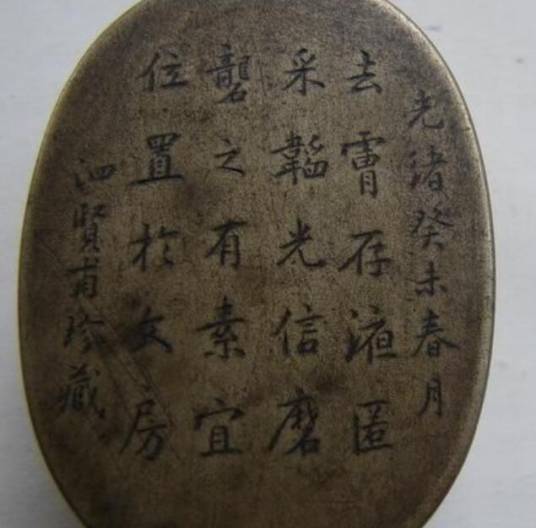 光緒癸未春月
去存液匿
采韜光信磨
礱之有素宜
位置於文房
泗賢甫珍藏